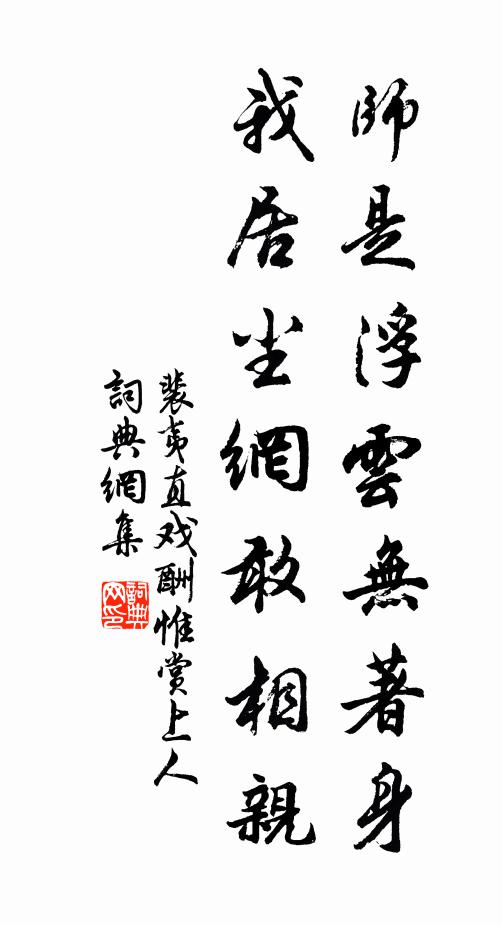 師是浮雲無著身
我居塵網敢相親
裴夷直戏酬惟賞上人
詞典網集
詞典网印